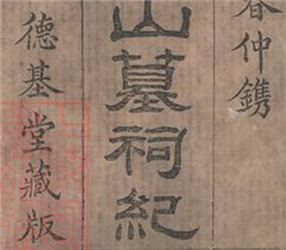 春仲鐫
山墓祠紀
德基堂藏版